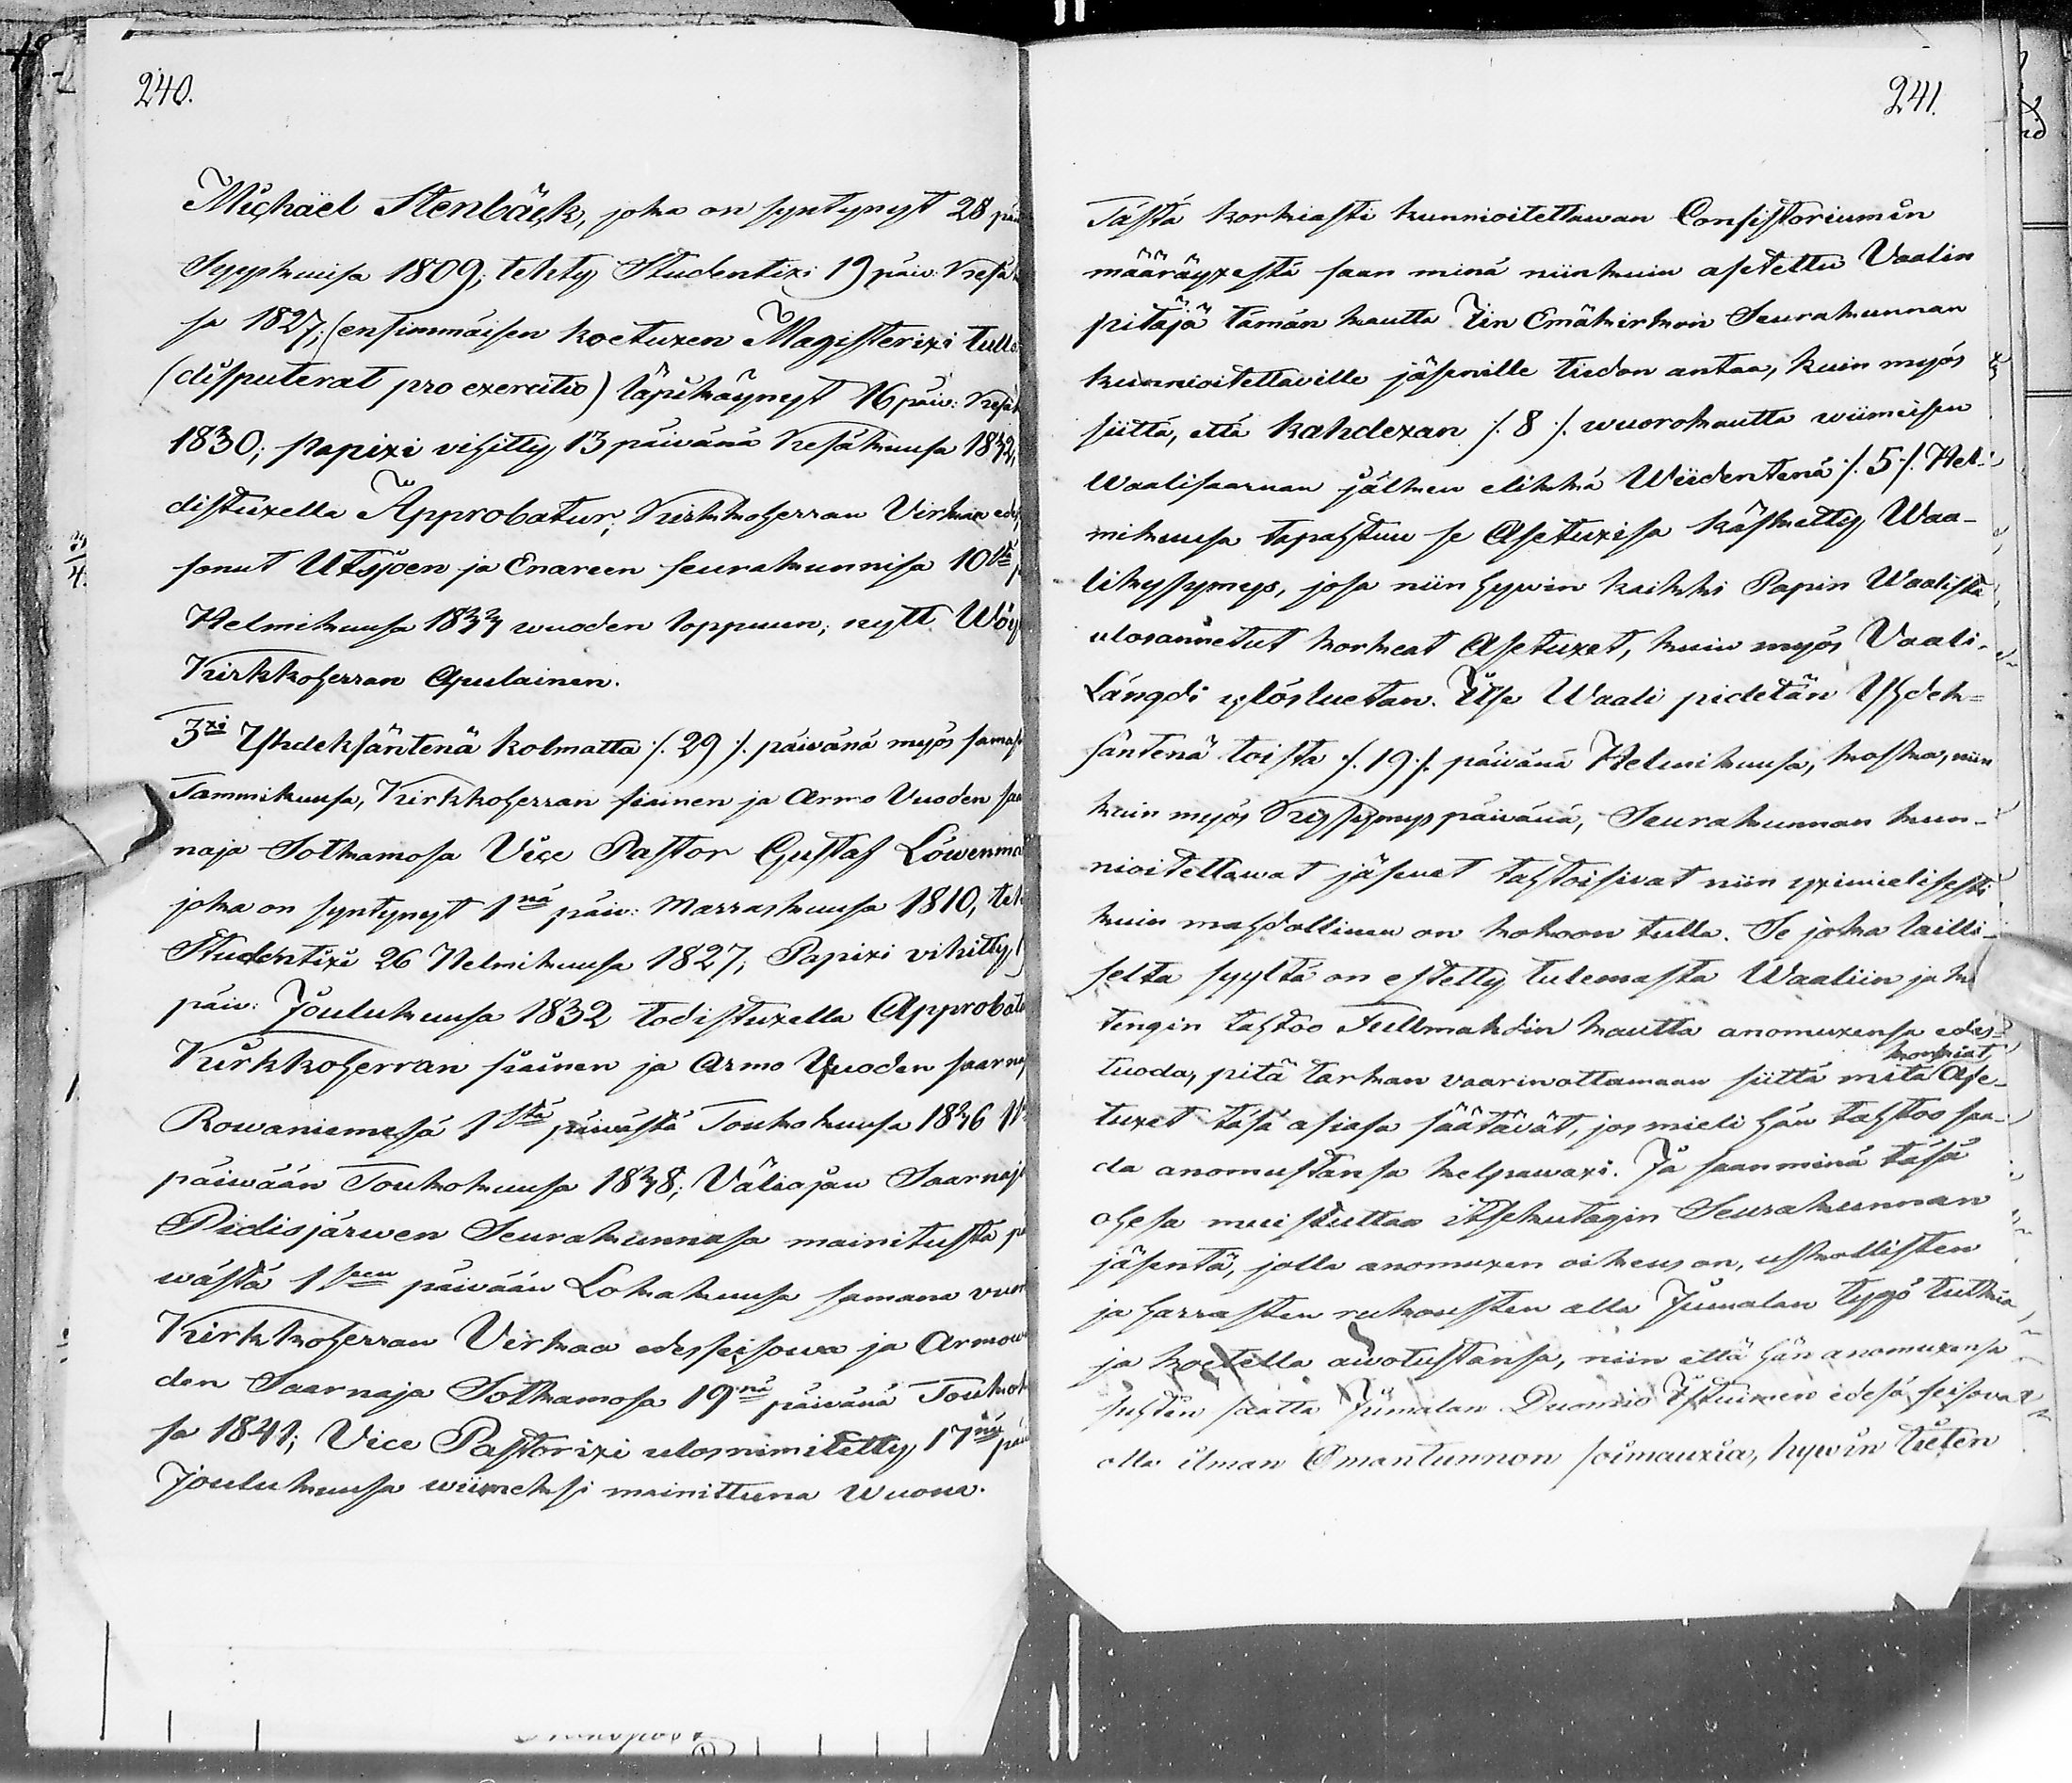 240.
Michaël Stenbäck, joka on syntynyt 28 päi
Syyskuusa 1809; tehty Studentixi 19 päiv: Kesäk
sa 1827; (ensimmäisen koetuxen Magisterixi tulla
(disputerat pro exercitio) läpikäynyt 16 päiv: Kesäk
1830; papixi vihitty 13 päivänä Kesäkuusa 1832,
distuxella Approbatur; Kirkkoherran Virkaa edes
sonut Utsjoen ja Enareen seurakunnisa 10stä p
Helmikuusa 1833 wuoden loppuun; nytt Wöy
Kirkkoherran Apulainen.
3xi Yhdeksäntenä kolmatta /. 29 /. päivänä myös samas
Tammikuusa, Kirkkoherran siainen ja Armo Vuoden saa
naja Sotkamosa Vice Pastor Gustaf Löwenma
joka on syntynyt 1nä päiv: Marraskuusa 1810, teh
Studentixi 26 Helmikuusa 1827; Papixi vihitty 1
päiv: Joulukuusa 1832 todistuxella Approbatu
Kirkkoherran siainen ja Armo Vuoden saarnaj
Rowaniemesä 1stä päivästä Toukokuusa 1836 1
päiwään Toukokuusa 1838; Väliajan Saarnaja
Pidisjärwen Seurakunnasa mainitusta pä
wästä 1seen päivään Lokakuusa samana vuon
Kirkkoherran Virkaa edesseisowa ja Armow
den Saarnaja Sotkamosa 19nä päivänä Toukok
sa 1841; Vice Pastorixi ulosnimitetty 17nä päi
Joulukuusa wiimeksi mainittuna Wuona.
241.
Tästä korkiasti kunnioitettawan Consistoriumin
määräyxestä saan minä niinkuin asetettu Vaalin
pitäjä tämän kautta Iin Emäkirkon Seurakunnan
kunnioitettaville jäsenille tiedon antaa, kuin myös
siitä, että kahdexan /. 8 /. wuorokautta wiimeisen
Waalisaarnan jälken elikkä Wiidentenä /. 5 /. Hel-
mikuusa tapahtuu se Asetuxisa käsketty Waa-
likysymys, josa niin hywin kaikki Papin Waalista
ulosannetut korkeat Asetuxet, kuin myös Vaali-
Längdi ylösluetan. Itse Waali pidetän Yhdek-
säntenä toista /. 19 /. päivänä Helmikuusa, koska, niin
kuin myös Kysymys päivänä, Seurakunnan kun-
nioitettawat jäsenet tahtoisivat niin yximielisesti
kuin mahdollinen on kokoon tulla. Se joka lailli-
selta syyltä on estetty tulemasta Waaliin ja ku
tengin tahtoo Fullmahdin kautta anomuxensa edes-
tuoda, pitä tarkan vaarinottamaan siitä mitä korkiat Ase-
tuxet täsä asiasa säätävät, jos mieli hän tahtoo saa-
da anomustansa kelpawaxi. Ja saan minä täsä
ohesa muistuttaa itsekutagin Seurakunnan
jäsentä, jolla anomuxen oikeus on, uskollisten
ja harrasten rukousten alla Jumalan tygö tutkia
ja koetella awotustansa, niin että hän anomuxensa
suhten saatta Jumalan Duomio Istuimen edesä seisova
olla ilman Omantunnon soimauxia, hywin tieten